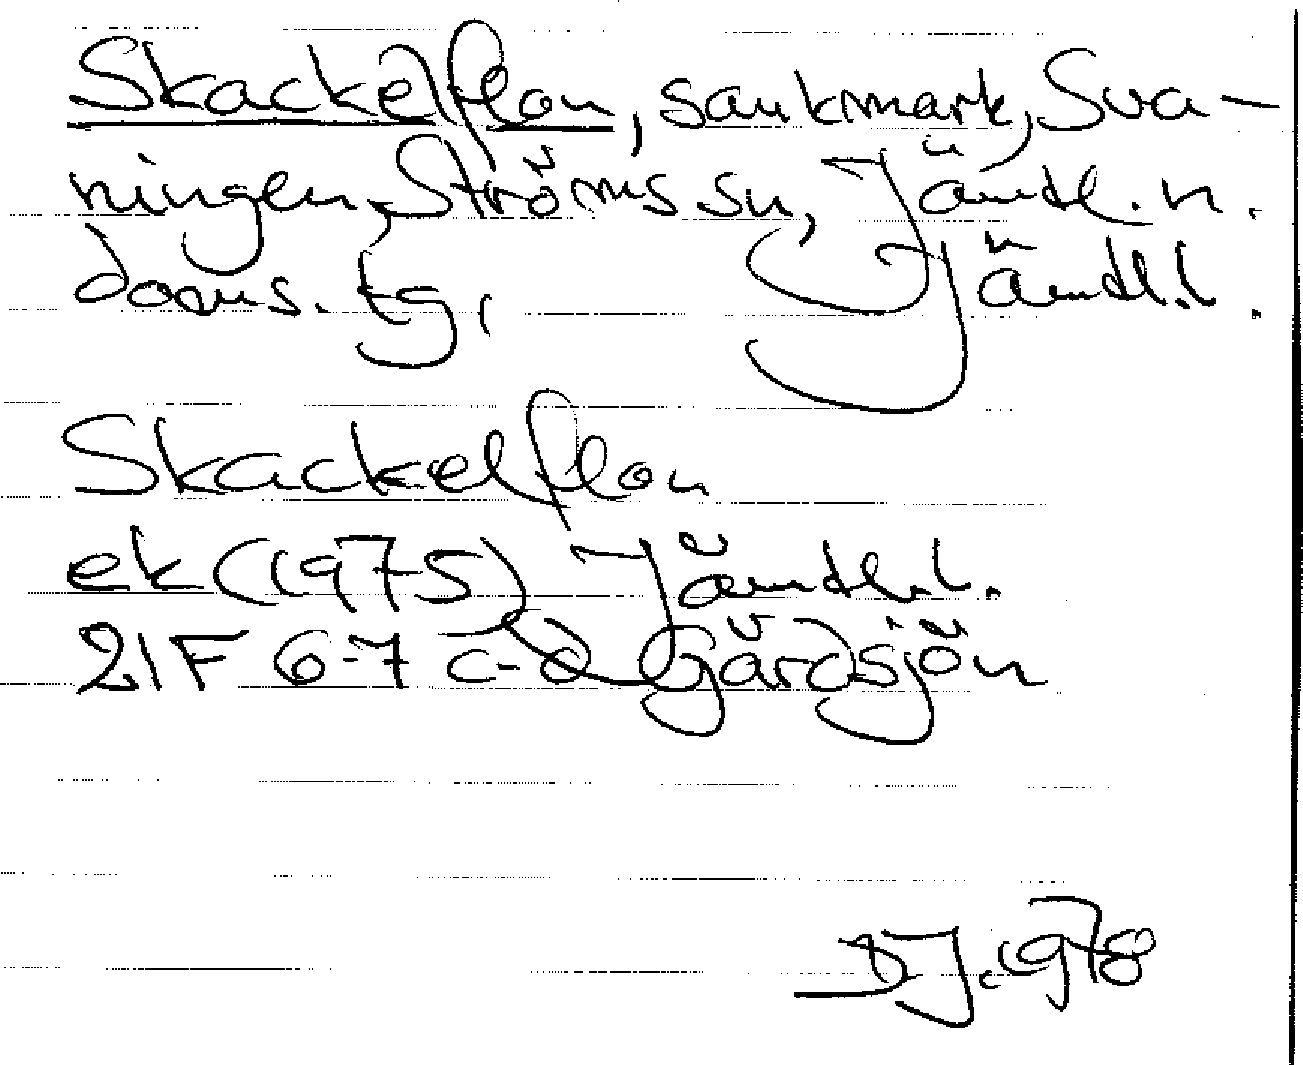 Skackelflon, sankmark, Sva-
ningen, Ströms sn, Jämtl. n.
doms. tg, Jämtl.l.
Skackelflon
ek (1975) Jämtl.l.
21F 6-7 c-d Gårdsjön
DJ. 1978